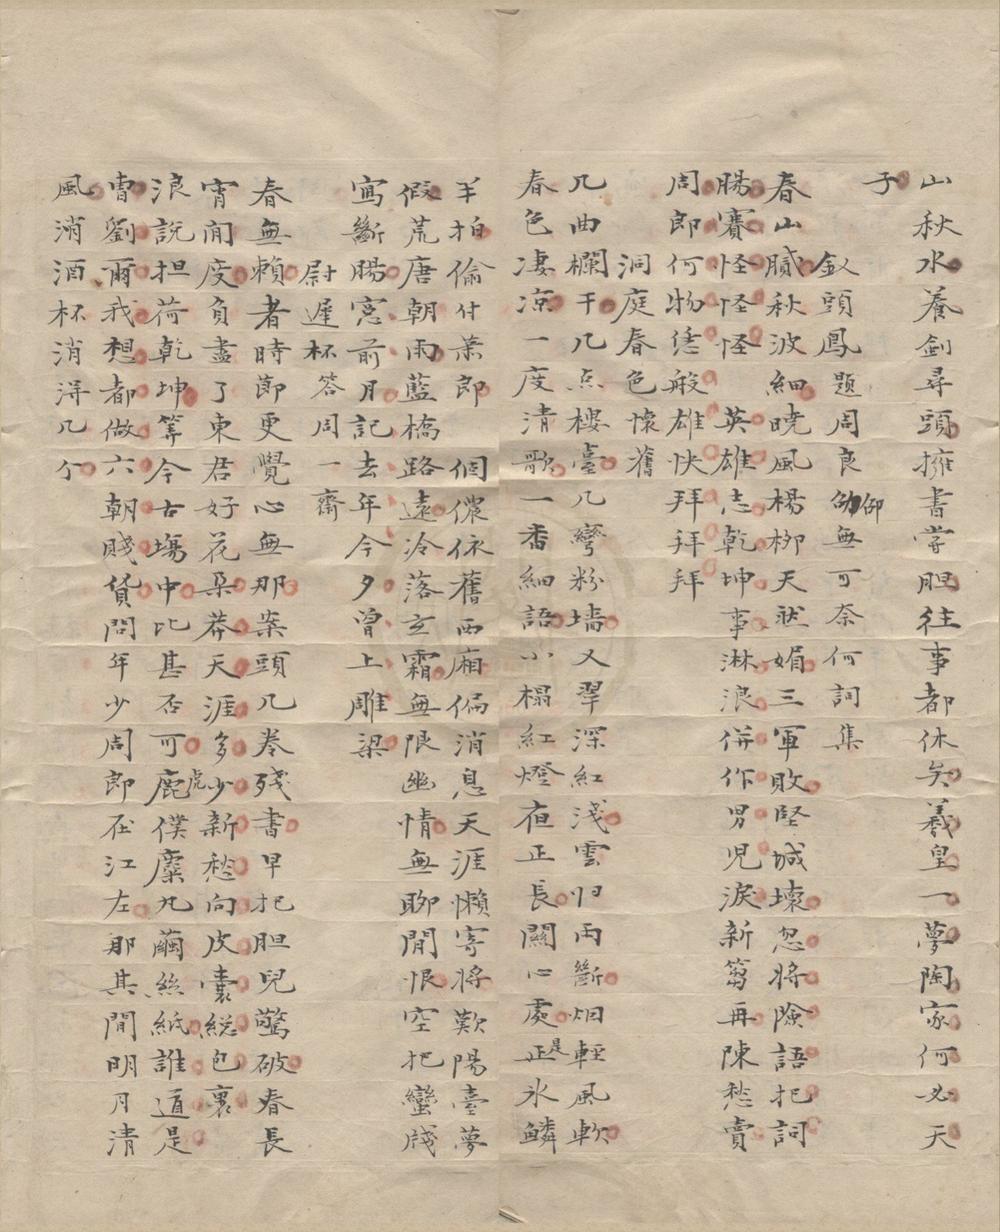 山秋水養劍尋頭擁書嘗胆往事都休矣羲皇一夢陶家何必天
子
釵頭鳳題周良卿無可奈何詞集
春山膩秋波細曉風楊柳天然媚三軍敗堅城壞忽將險語把詞
腸賽怪怪怪英雄志乾坤事淋浪併作男兒淚新篘再陳愁賣
周郎何物恁般雄快拜拜拜
洞庭春色懷舊
几曲欄干几点樓臺几彎粉墻又翠深紅淺雲歸雨斷烟輕風軟
春色凄凉一度清歌一番細語小榻紅燈夜正長關心處正是氷鱗
羊拍偷付葉郎個儂依舊西廂偏消息天涯懶寄將歎陽臺夢
假荒唐朝雨藍橋路遠冷落玄霜無限幽情無聊閒恨空把蠻牋
寫斷腸窓前月記去年今夕曾上雕梁
尉遲杯答周一齋
春無賴者時節更覺心無那案頭几卷殘書早把胆兒驚破春長
宵閒度負盡了東君好花朵莽天涯多少新愁向皮囊総包裹
浪說担荷乾坤等今古塲中比甚否可鹿虎僕麋丸繭絲紙誰道是
曹劉爾我想都做六朝賤貨問年少周郎在江左那其間明月清
風消酒杯消淂几个